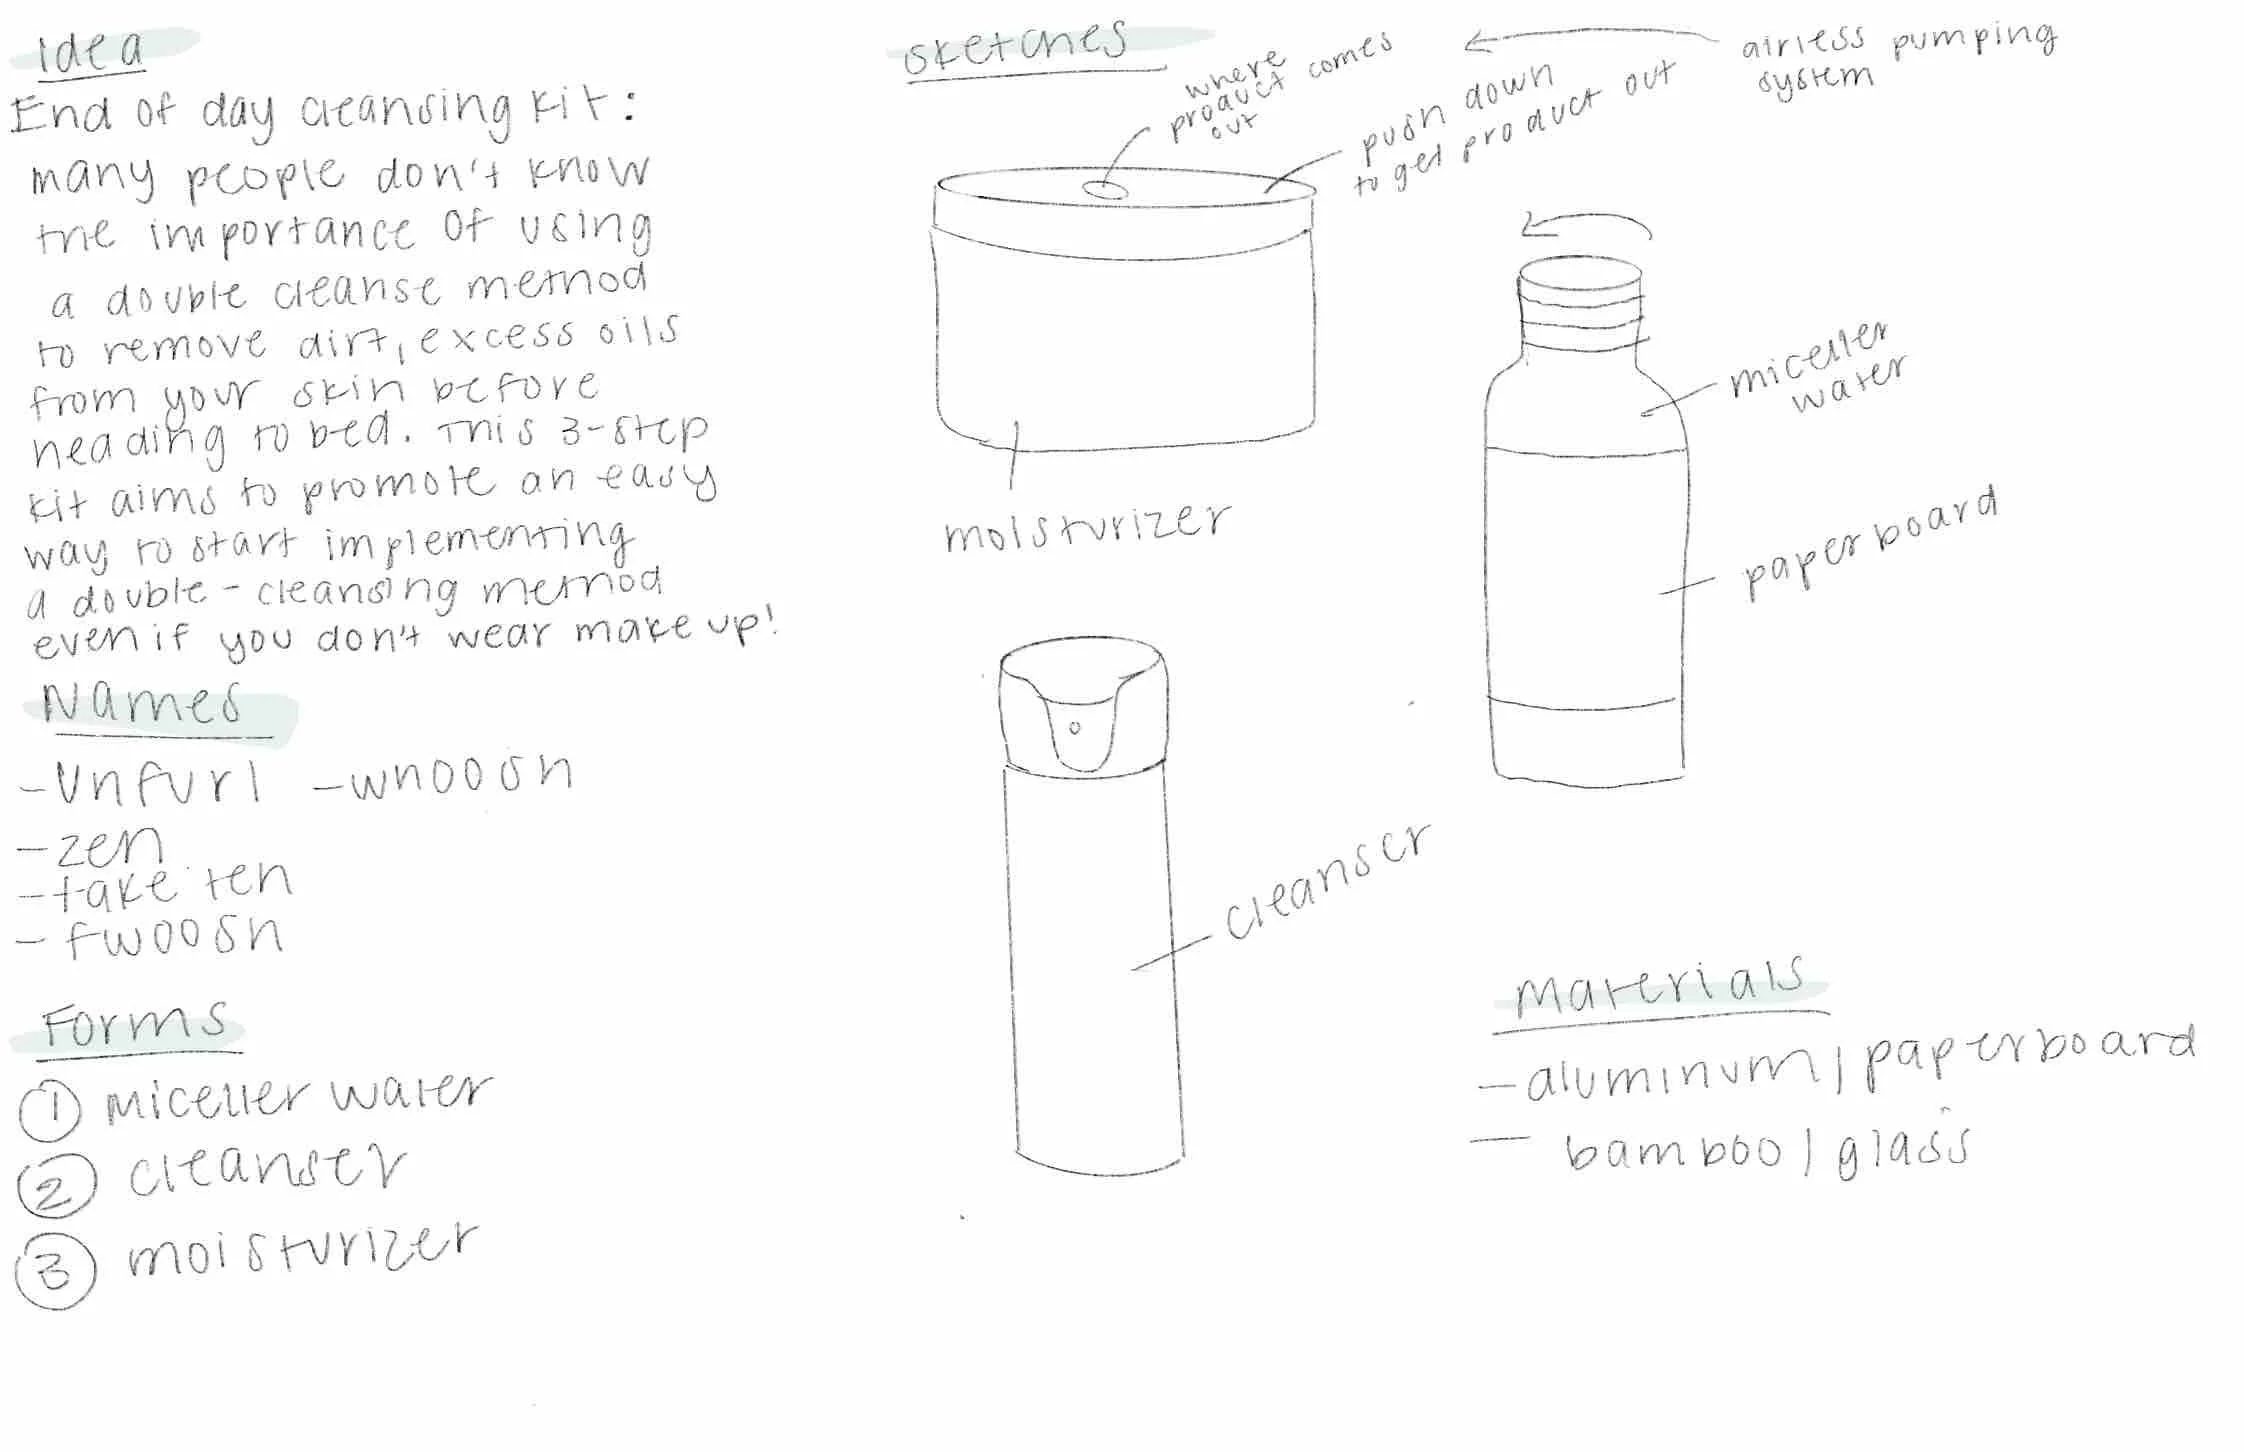 Idea
End of day cleansing kit:
many people don't know
the importance of using
a double cleanse method
to remove dirt, excess oils
from your skin before
heading to bed. This 3-step
kit aims to promote an easy
way to start implementing
a double-cleansing method
even if you don't wear make up!
Names
-Unfurl -whoosh
-zen
-take ten
-fwoosh
Forms
1 Miceller water
2 cleanser
3 moisturizer
Sketches
where
product comes
out
push down
to get product out
airless pumping
system
moisturizer
miceller
water
paperboard
cleanser
Materials
-aluminum/paperboard
- bamboo/glass